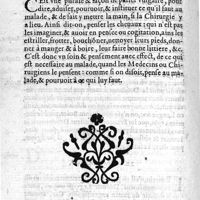 C'Est vne phrase & façon de parler vulgaire, pour
dire, aduiser, pouruoir, & instituer ce qu'il faut au
malade, & de fait y mettre la main, si la Chirurgie y
a lieu. Ainsi dit-on, penser les cheuaux : qui n'est pas
les imaginer, & auoir en pensee ou cogitation, ains les
estriller, frotter, bouchonner, nettoyer leurs pieds, don-
ner à manger & à boire, leur faire bonne littiere, &c.
C'est donc vn soin & pensement auec effect, de ce qui
est necessaire au malade, quand les Medecins ou Chi-
rurgiens le pensent : comme si on disoit, pense au ma-
lade, & pouruoit à ce qui luy faut.